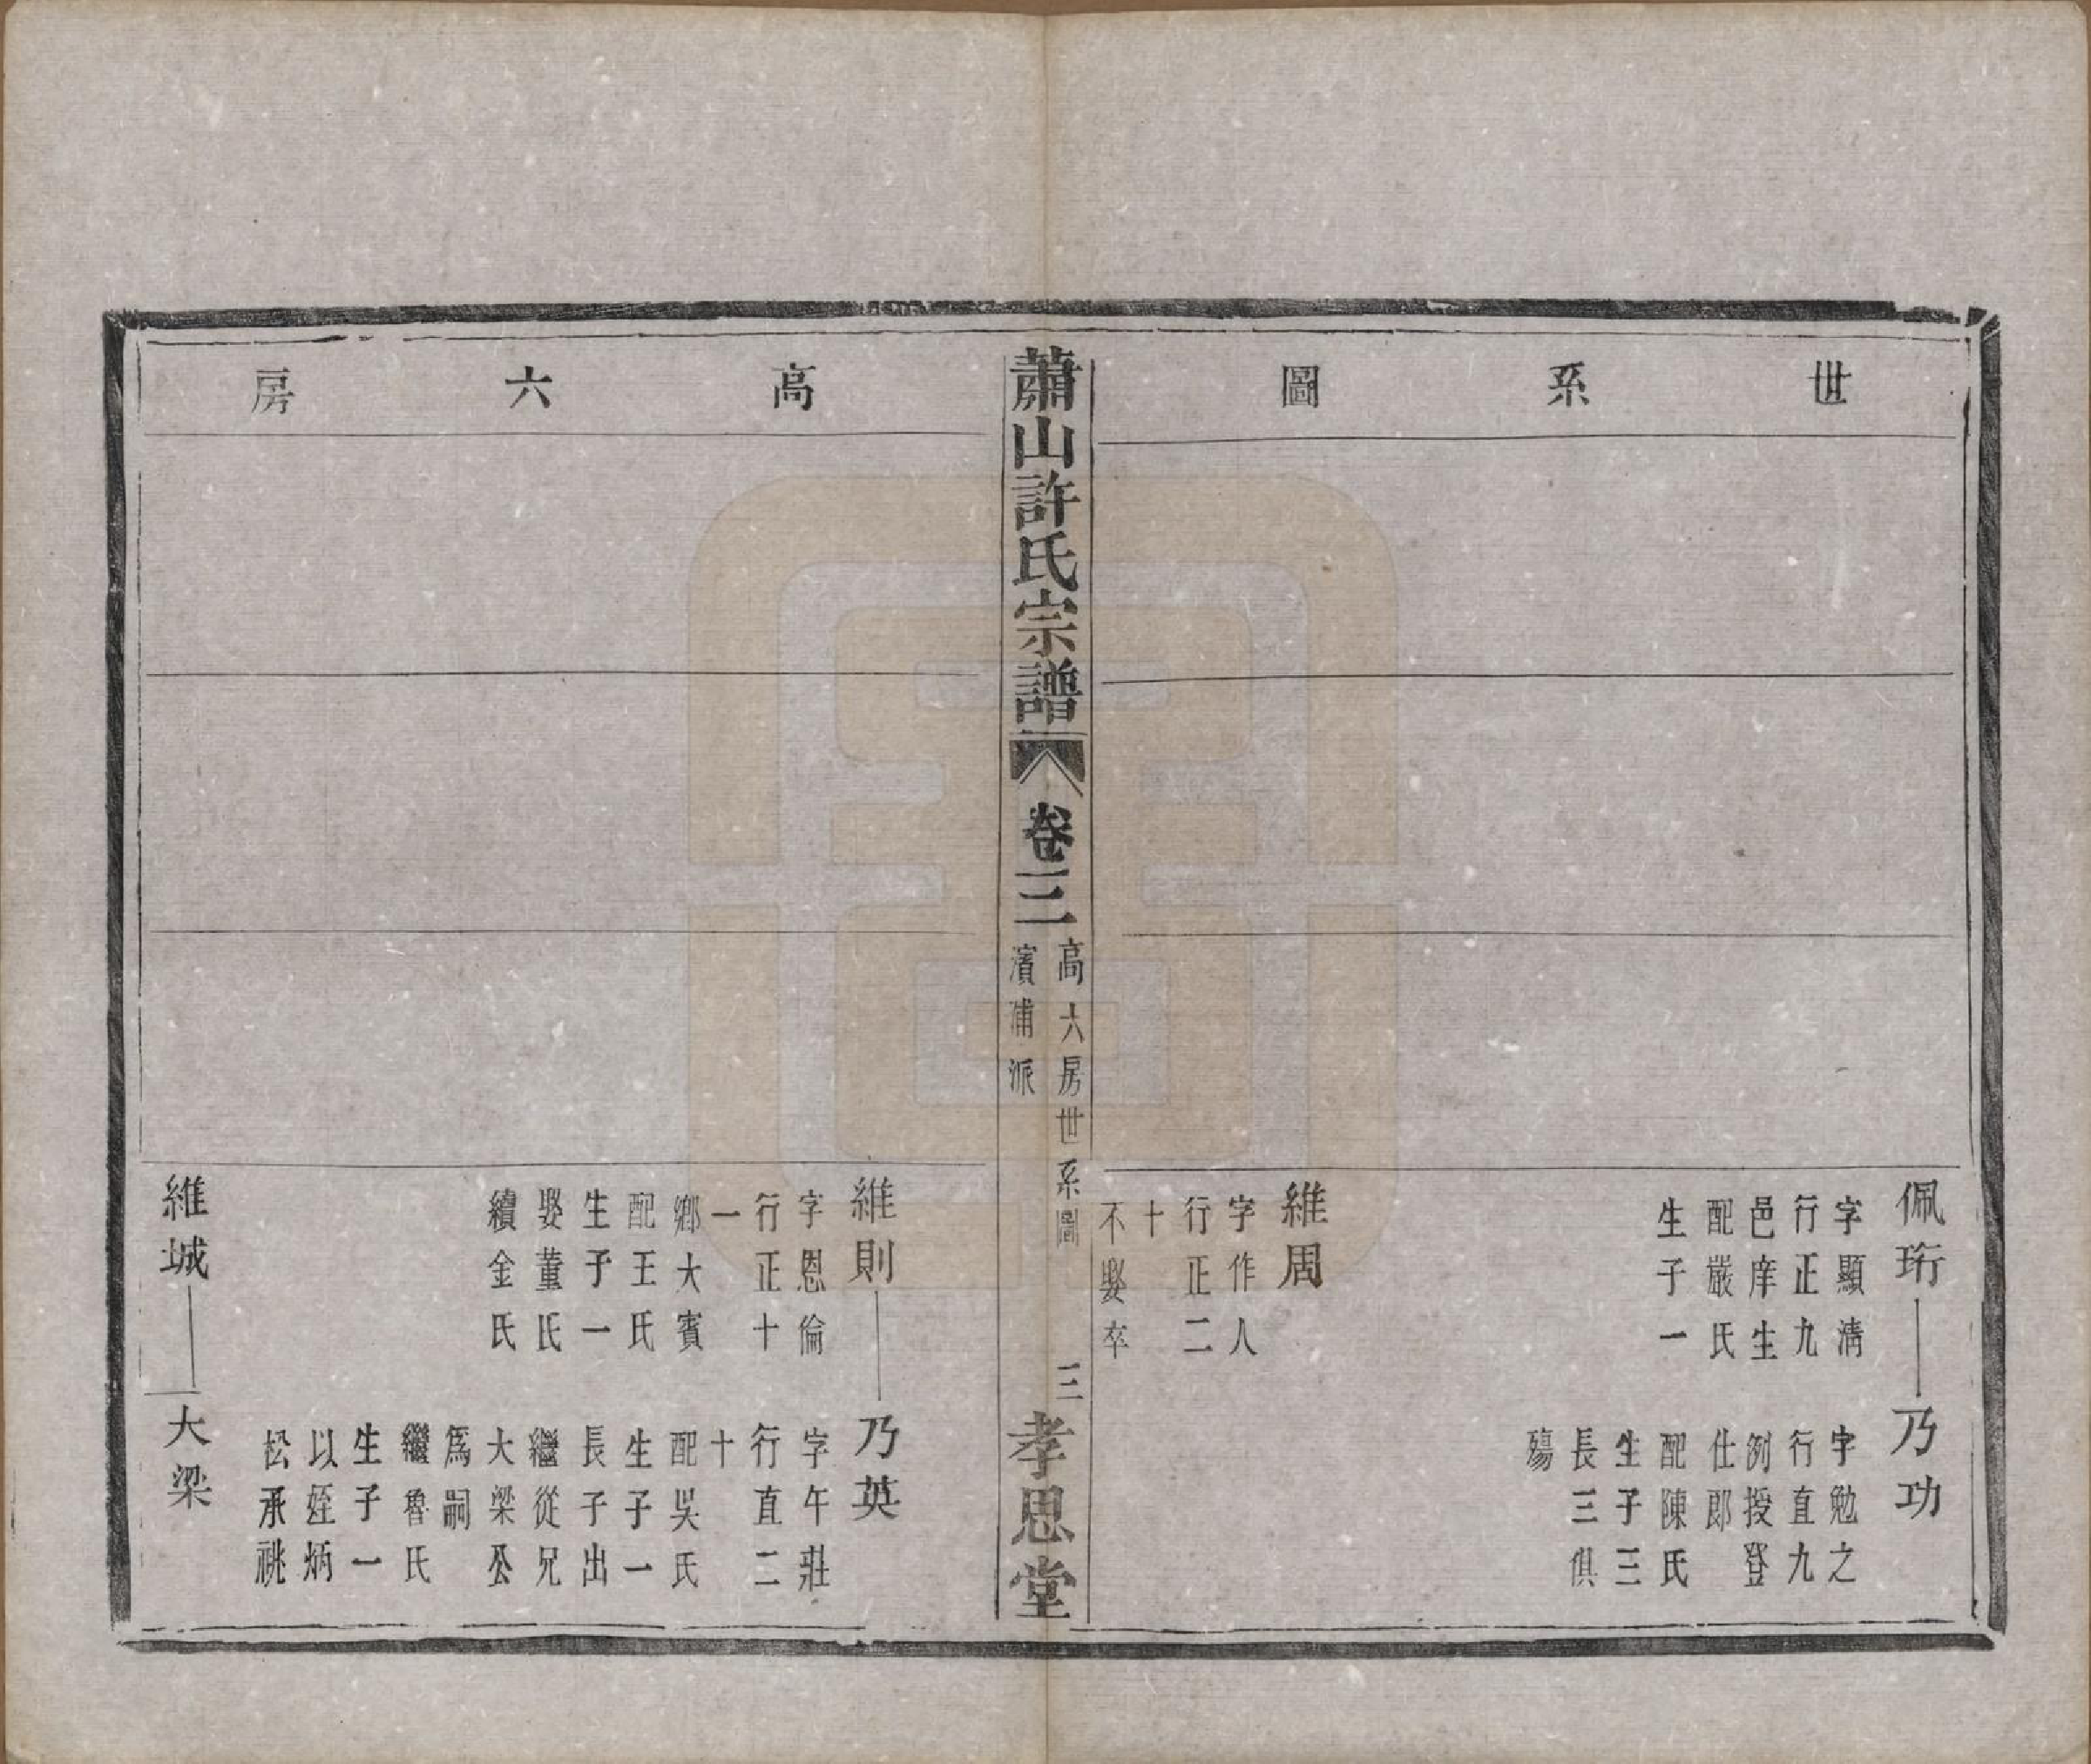 世系圖
佩珩
字顯清
行正九
邑庠生
配嚴氏
生子一
乃功
字勉之
行直九
例授登
仕郎
配陳氏
生子三
長三俱
殤
維周
字作人
行正二
十
不娶卒
蕭山許氏宗譜
卷三
高六房世系圖
濱浦派
三
孝思堂
高六房
維則
字恩倫
行正十
一
鄉大賓
配王氏
生子一
娶董氏
續金氏
乃英
字午莊
行直二
十
配吳氏
生子一
長子出
繼從兄
大梁公
爲嗣
繼魯氏
生子一
以姪炳
松承祧
維城
大梁